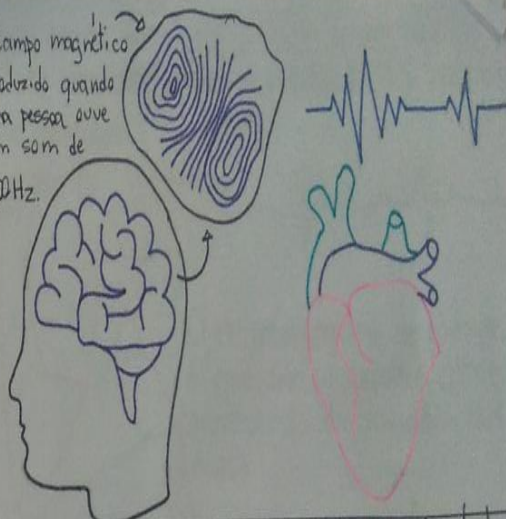 ampo magnético
oduzido quando
a pessoa ouve
m som de
0Hz.